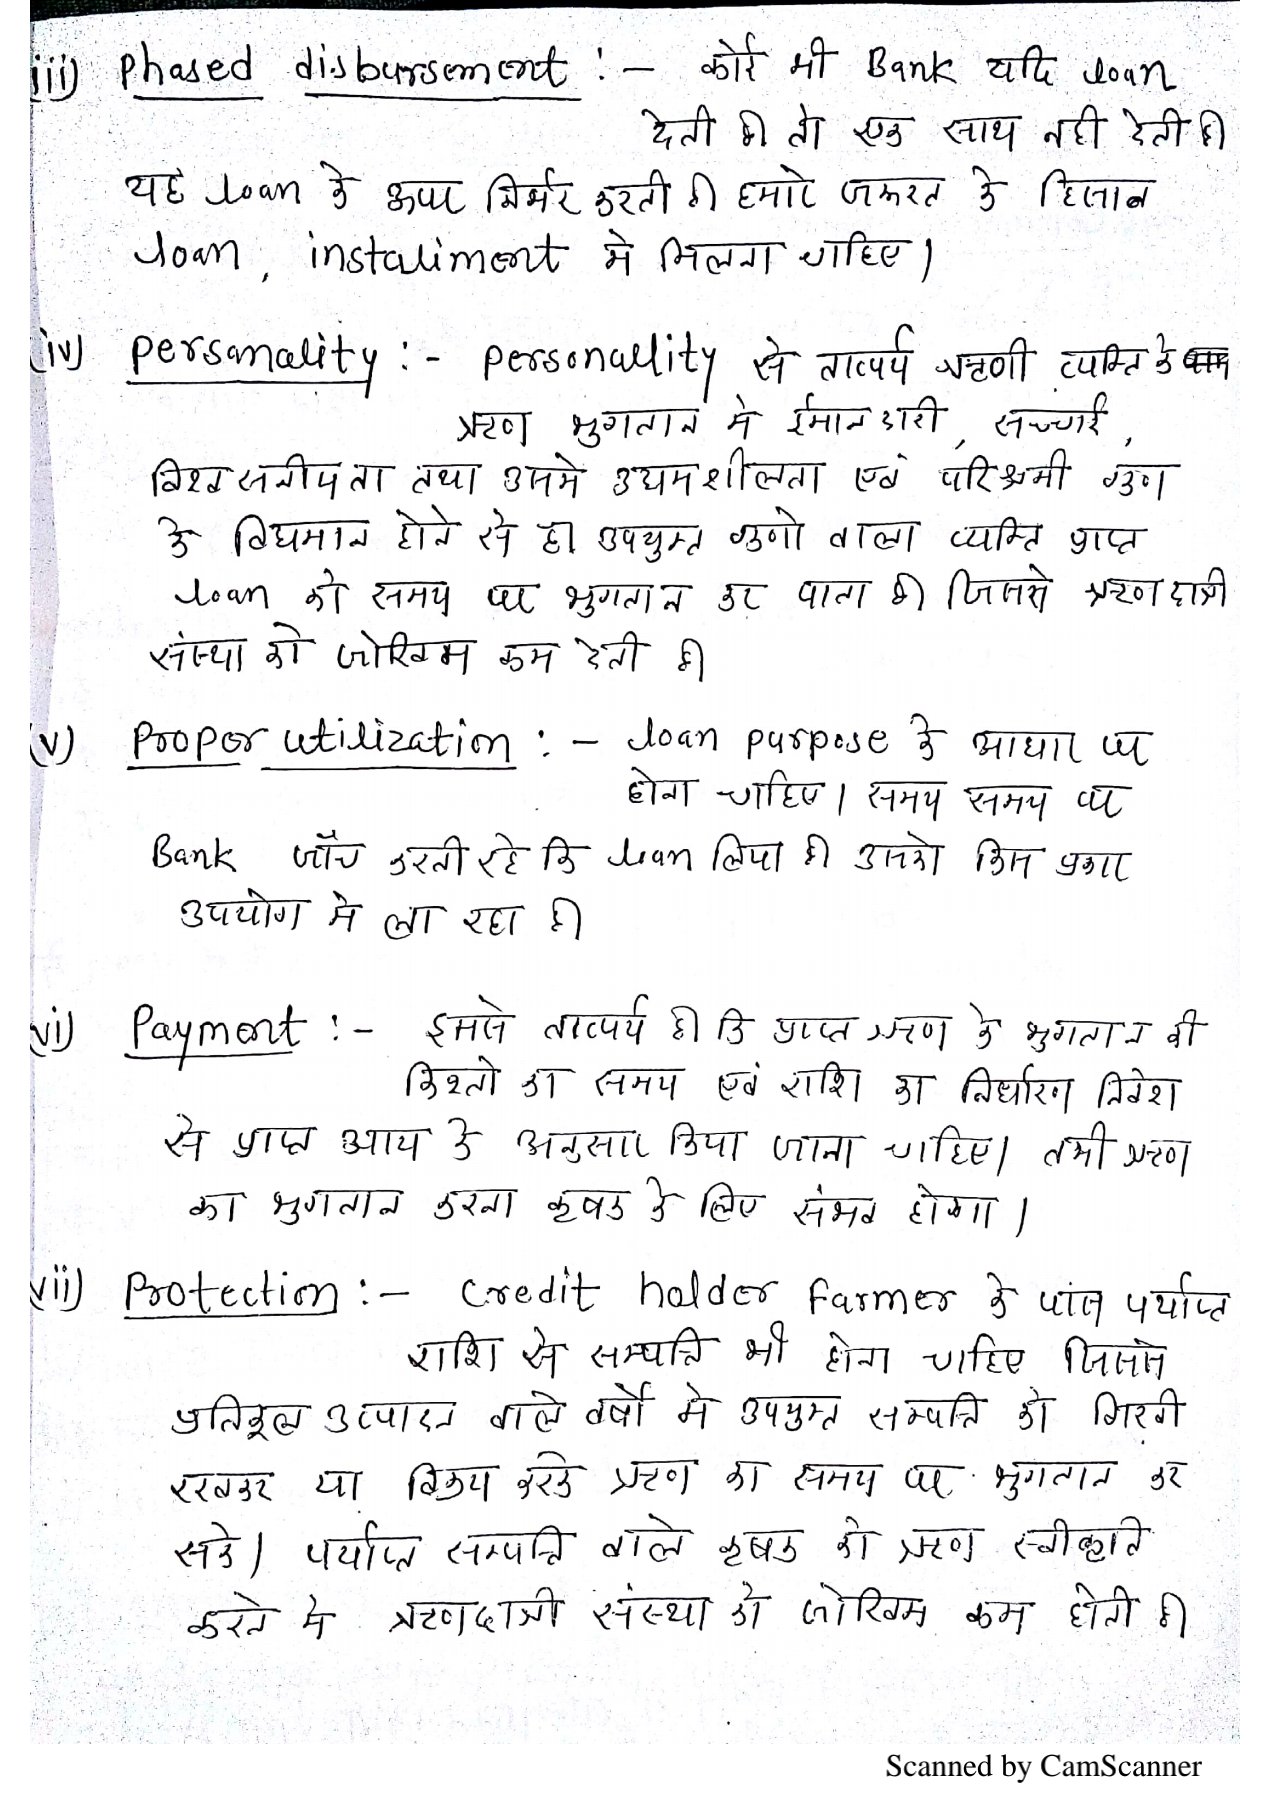 iii) Phased disbursement :- कोई भी Bank यदि loan
देती है तो एक साथ नही देती है
यह loan के ऊपर निर्भर करती है हमारे जरूरत के हिसाब
loan, instaliment मे मिलना चाहिए।
(iv) Personality :- Personallity से तात्पर्य ऋणी व्यक्ति के
ऋण भुगतान मे ईमानदारी, सच्चाई,
विश्वसनीयता तथा उसमे उद्यमशीलता एवं परिश्रमी गुण
के विद्यमान होने से है। उपयुक्त गुणो वाला व्यक्ति प्राप्त
loan को समय पर भुगतान कर पाता है जिससे ऋणदात्री
संस्था को जोखिम कम देती है
(v) Proper utilization :- loan purpose के आधार पर
होना चाहिए। समय समय पर
Bank जाँच करती रहे कि loan लिया है उसको किस प्रकार
उपयोग मे ला रहा है
vi) Payment :- इससे तात्पर्य है कि प्राप्त ऋण के भुगतान की
किश्तो का समय एवं राशि का निर्धारण निवेश
से प्राप्त आय के अनुसार किया जाना चाहिए। तभी ऋण
का भुगतान करना कृषक के लिए संभव होगा।
vii) Protection :- Credit holder Farmer के पास पर्याप्त
राशि से सम्पत्ति भी होना चाहिए जिससे
प्रतिकूल उत्पादन वाले वर्षो मे उपयुक्त सम्पत्ति को गिरवी
रखकर या विक्रय करके ऋण का समय पर भुगतान कर
सके। पर्याप्त सम्पत्ति वाले कृषक को ऋण स्वीकृति
करने मे ऋणदात्री संस्था को जोखिम कम होती है
Scanned by CamScanner